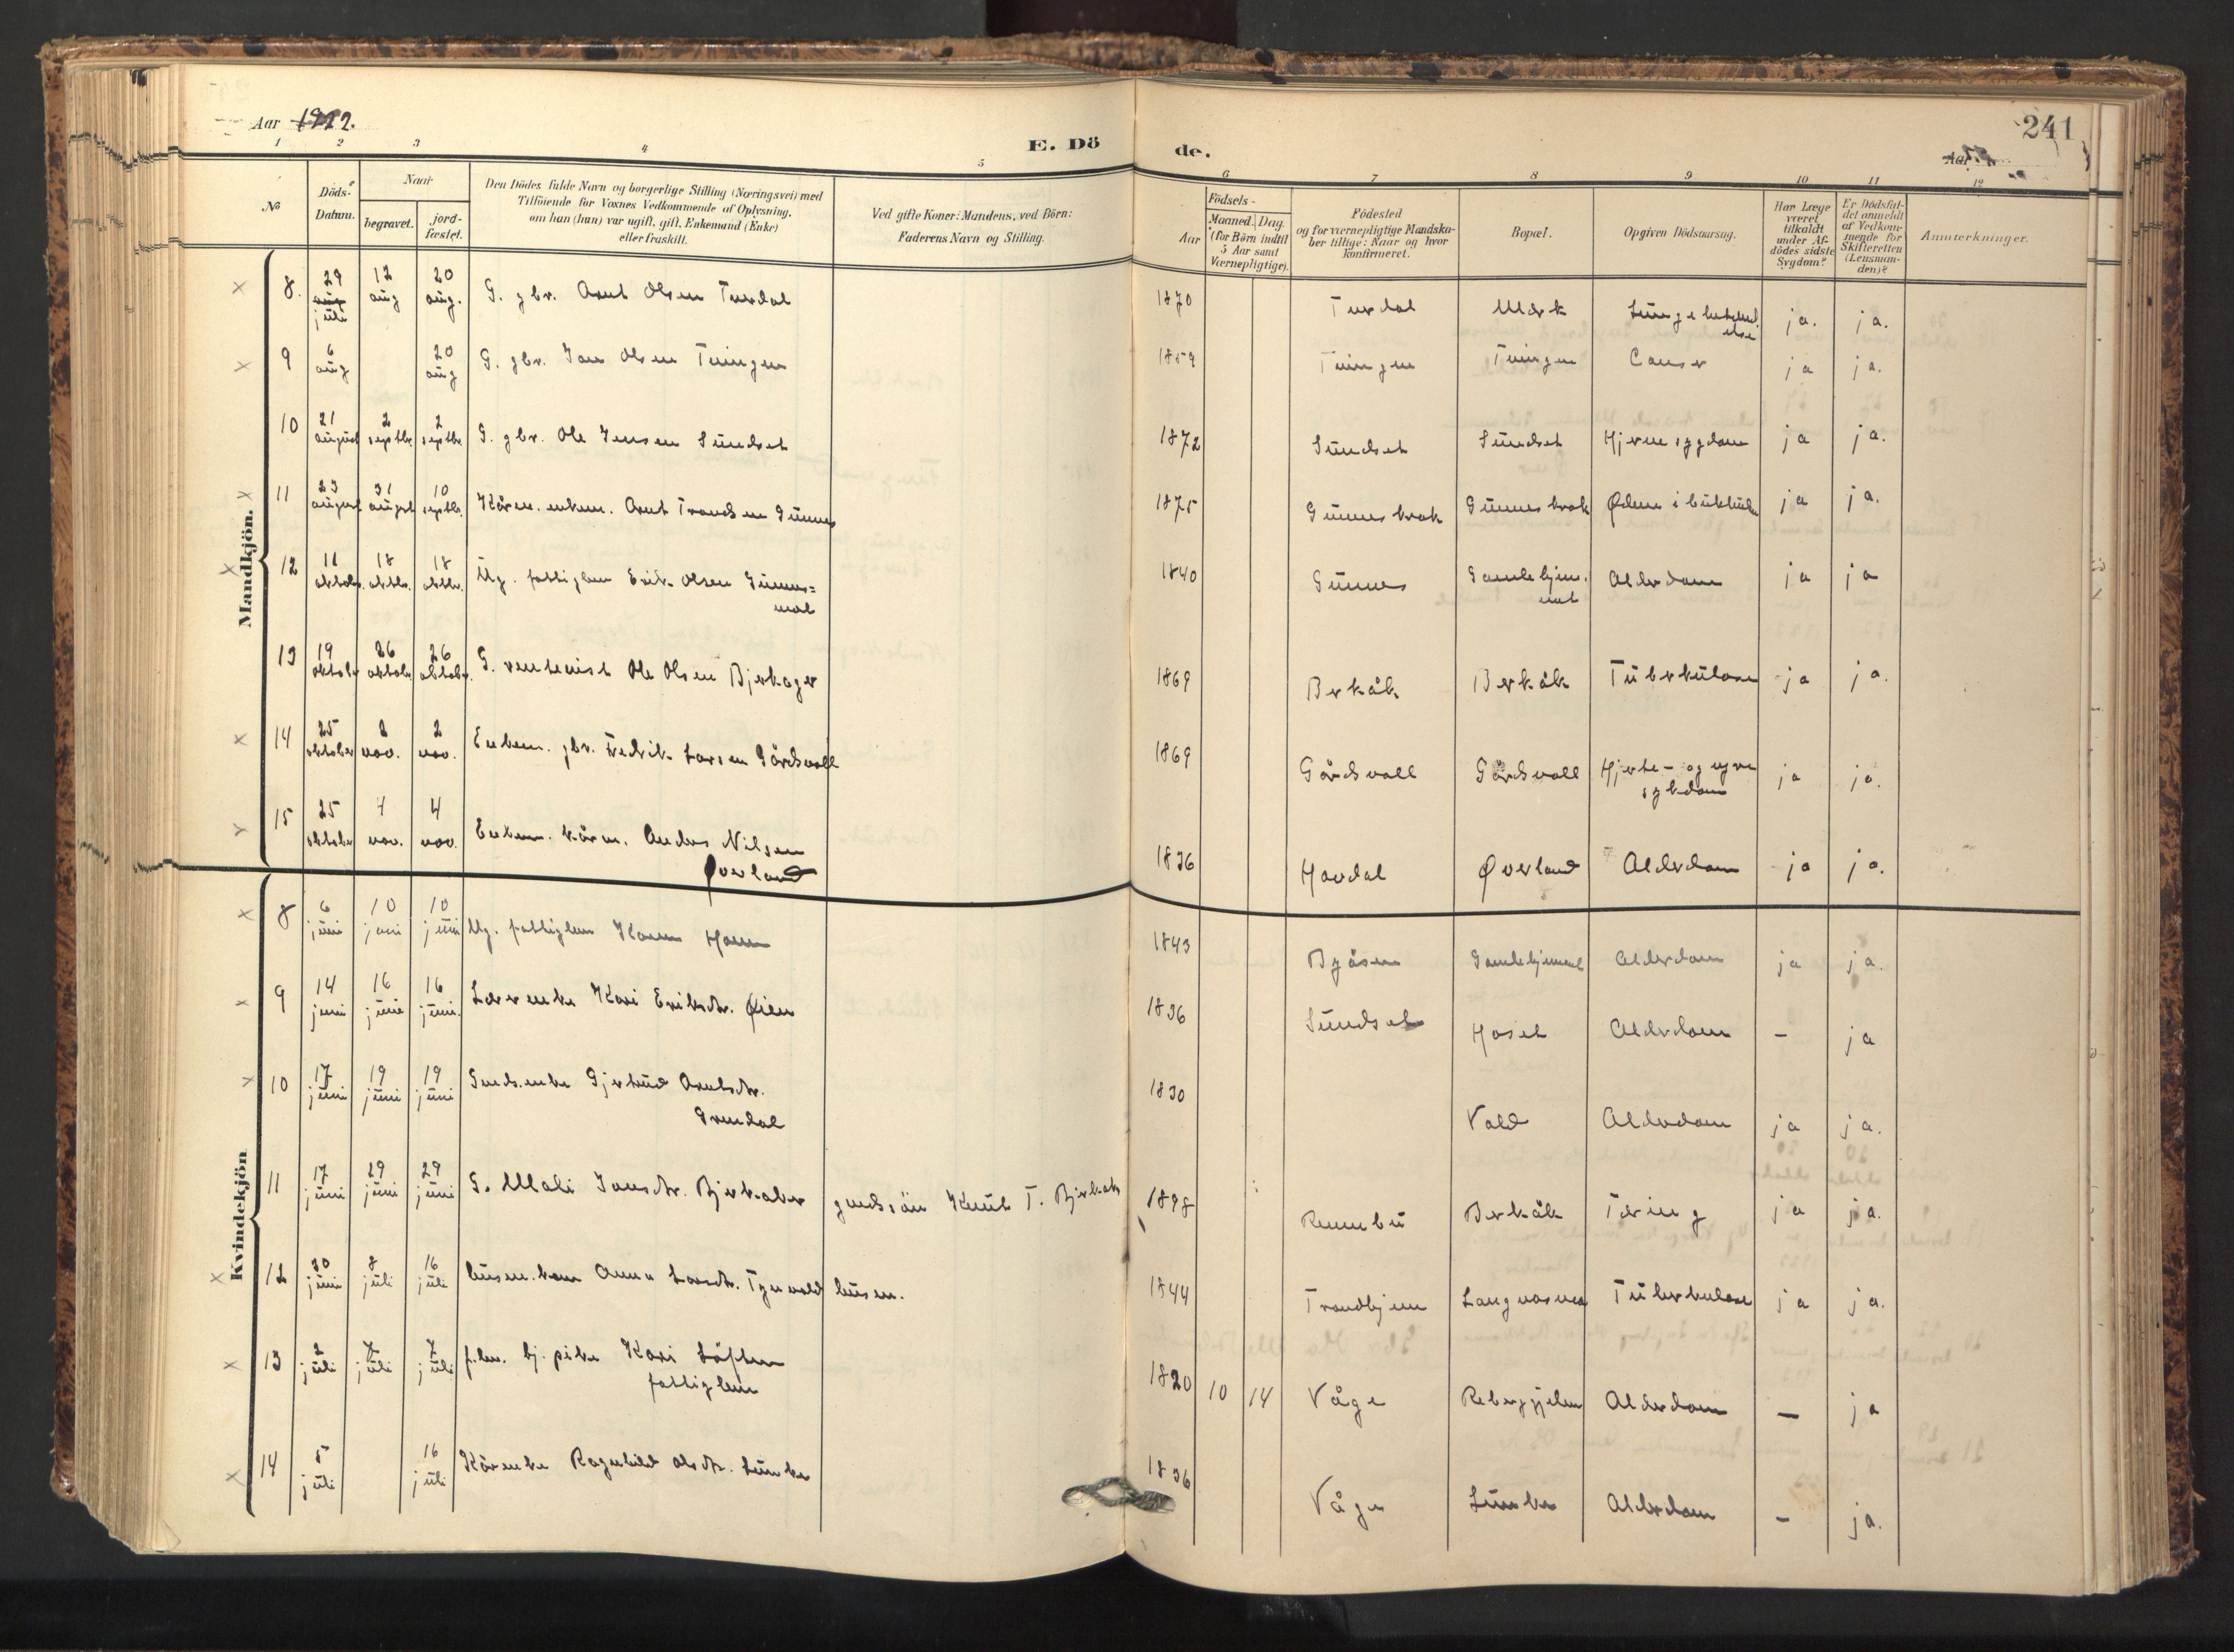 Aar 1922.
E. Dö
de.
241
Aar
1 2 3 4 5
6 7 8 9 10 11 12
No
Döds-
Datum.
Naar
begravet.
jord-
fæstet.
Den Dödes fulde Navn og borgerlige Stilling (Næringsvei) med
Tilföiende for Voxnes Vedkommende af Oplysning,
om han (hun) var ugift, gift, Enkemand (Enke)
eller fraskilt.
Ved gifte Koner: Mandens, ved Börn:
Faderens Navn og Stilling.
Födsels-
Aar
Maaned. Dag.
(for Börn indtil
5 Aar samt
Værnepligtige).
Födested
og for værnepligtige Mandska-
ber tillige: Naar og hvor
konfirmeret.
Bopæl.
Opgiven Dödsaarsag.
Har Læge
været
tilkaldt
under Af-
dödes sidste
Sygdom?
Er Dödsfal-
det anmeldt
af Vedkom-
mende for
Skifteretten
(Lensman-
den)?
Anmærkninger.
Mandkjön.
8. 29 juli 12 aug 20 aug. G. gbr. Arnt Olsen Turdal 1870 Turdal ja. ja.
9 6 aug 20 aug G. gbr. Jon Olsen Tuingen 1859 Tuingen Tuingen Canser ja ja.
10 21 august 2 septbr. 2 septbr. G. gbr. Ole Jensen Sundset 1872 Sundset Sundset Hjernesygdom ja ja.
11 23 august 31 august 10 septbr. Kårm. enkem. Arnt Trondsen Gunnes 1875 Gunneskrok Gunneskrok Ødem i ja ja.
12 11 oktobr. 18 oktbr. 18 oktbr. Ug. fattiglem Erik Olsen Gunnes=
mal 1840 Gunnes Gamlehjem-
met Alderdom ja ja
13 19 oktobr 26 oktobr 26 oktobr. G. rentenist Ole Olsen Bjerkager 1869 Berkåk Berkåk Tuberkulose ja ja.
14 25 oktober 2 nov. 2 nov. Enkem. gbr. Fredrik Larsen Gårdsvoll 1869 Gårdsvoll Gårdsvoll Hjerte- og nyre
sykdom ja ja.
15 25 oktober 4 nov. 4 nov. Enkem. kårm. Anders Nilsen
Øverland 1836 Havdal Øverland Alderdom ja ja.
Kvindekjön
8 6 juni 10 juni 10 juni Ug. fattiglem Karen Ham 1843 Byåsen Gamlehjemmet Alderdom ja ja.
9 14 juni 16 juni 16 juni. Lærerenke Kari Eriksdr. Øien 1836 Sundset Hoset Alderdom - ja
10 17 juni 19 juni 19 juni Gmds.enke Gjertrud Arntsdr.
Grendal 1830 Vold Alderdom ja ja.
11 17 juni 29 juni 29 juni G. Mali Jonsdr. Bjerkaker gmdsön Knut T. Bjerkak 1898 Rennbu Berkåk Tæring ja ja.
12 30 juni 8 juli 16 juli husm. kone Anna Larsdr. Tynvold husm. 1844 Trondhjem Langvasmo Tuberkulose ja ja.
13 2 juli 7 juli 7 juli pike Kari Löften
fattiglem 1820 10 14 Våge Rebergjelen Alderdom - ja
14 5 juli 16 juli Kårenke Ragnhild Olsdr. Lunke 1836 Våge Lunke Alderdom - ja.